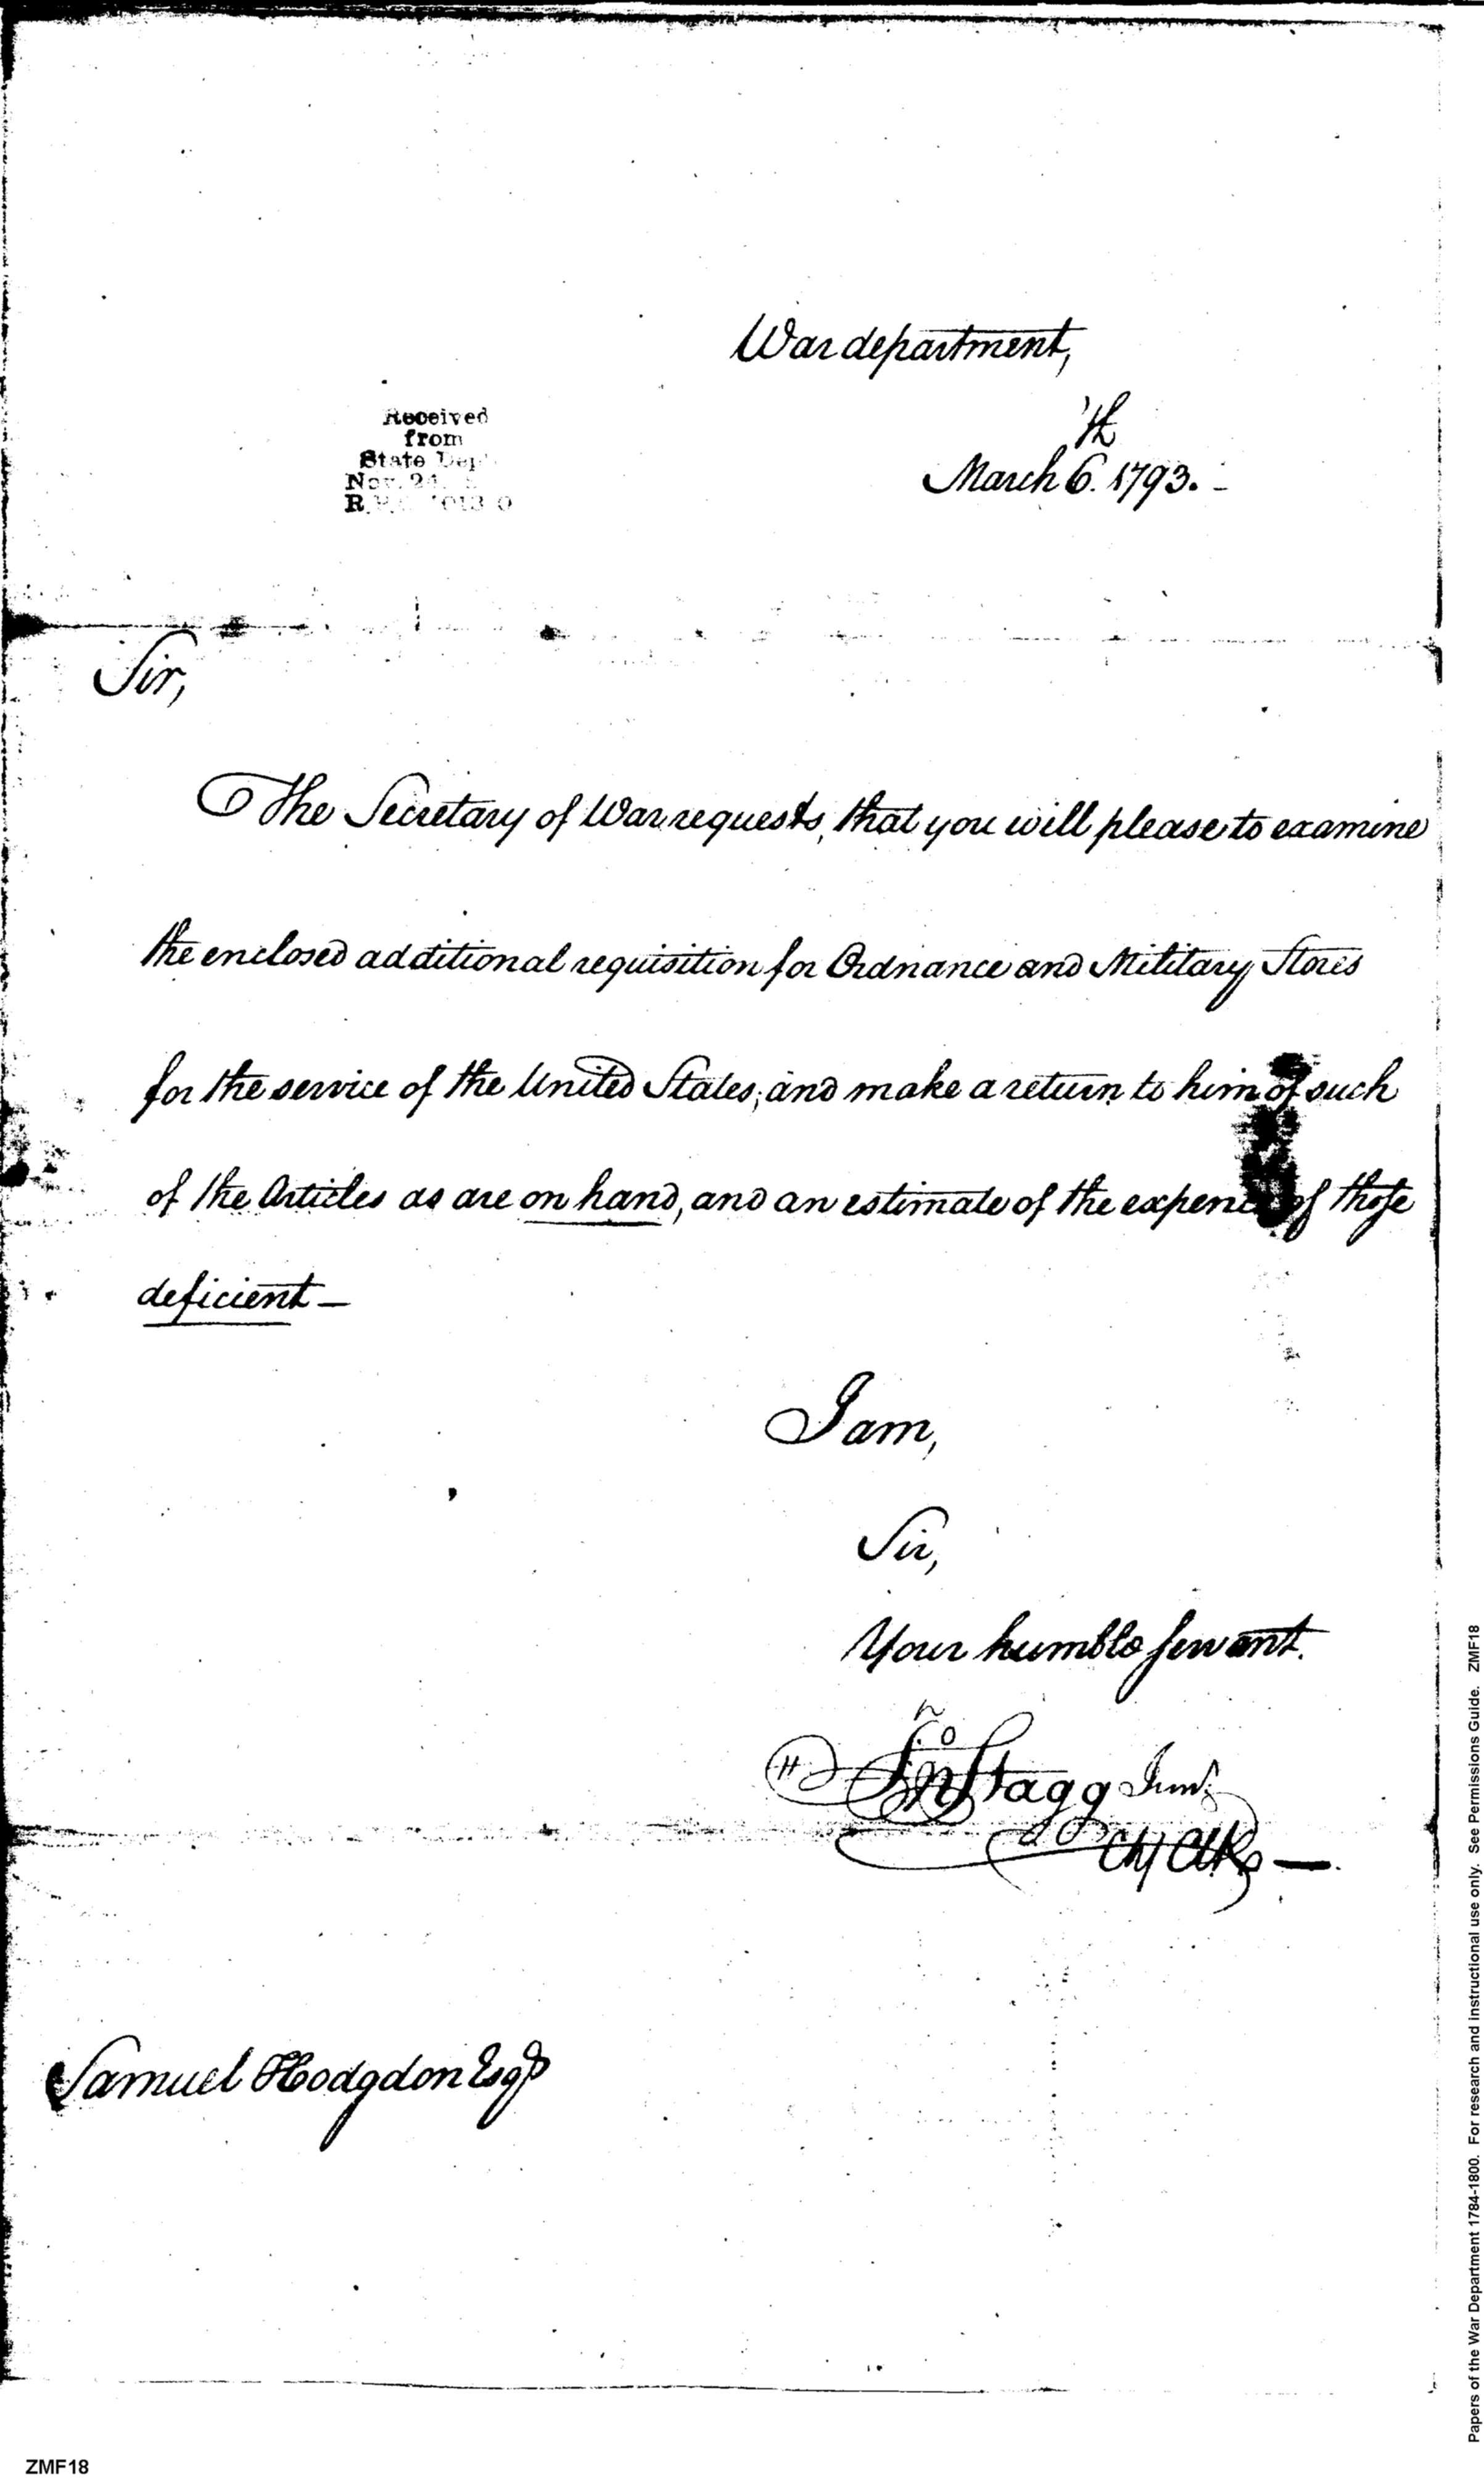 War department,
Received
from
State Dep
Nov. 24
th
March 6. 1793.
Sir,
The Secretary of War requests, that you will please to examine
the enclosed additional requisition for Ordnance and Military Stores
for the service of the United States; and make a return to him of such
of the Articles as are on hand, and an estimate of the expence of those
deficient —
I am,
Sir,
Your humble servant.
Jno Stagg Junr.
Chf Clk —
Samuel Hodgdon Esqr
ZMF18
Papers of the War Department 1784-1800. For research and instructional use only. See Permissions Guide. ZMF18